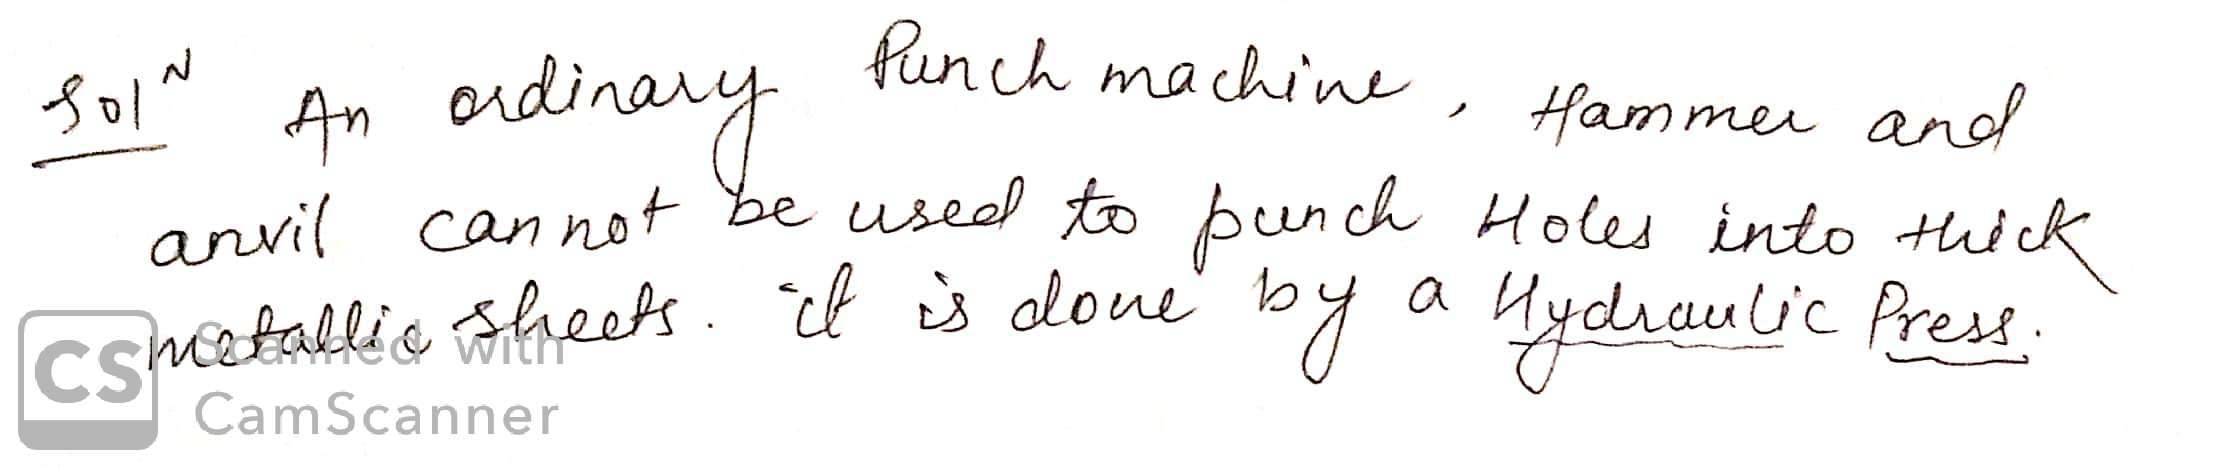 Solᴺ An ordinary Punch machine, Hammer and
anvil cannot be used to punch Holes into thick
metallic sheets. it is done by a Hydraulic Press.
CS Scanned with
CamScanner